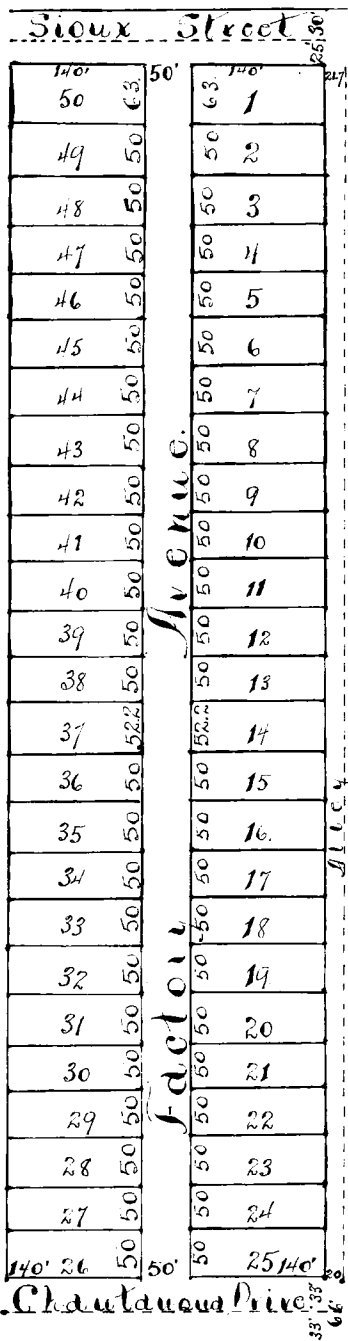 Sioux Street
25' 30'
140' 50' 140' 217
50 63. 63. 1
49 50 50 2
48 50 50 3
47 50 50 4
46 50 50 5
45 50 50 6
44 50 50 7
43 50 50 8
42 50 50 9
41 50 50 10
40 50 50 11
39 50 50 12
38 50 50 13
37 52.2 52.2 14
36 50 50 15
35 50 50 16.
34 50 50 17
33 50 50 18
32 50 50 19
31 50 50 20
30 50 50 21
29 50 50 22
28 50 50 23
27 50 50 24
140' 26 50 50' 50 25 140' 20
Factory Avenue.
Alley
Chautauqua Drive.
33' 33'
66'